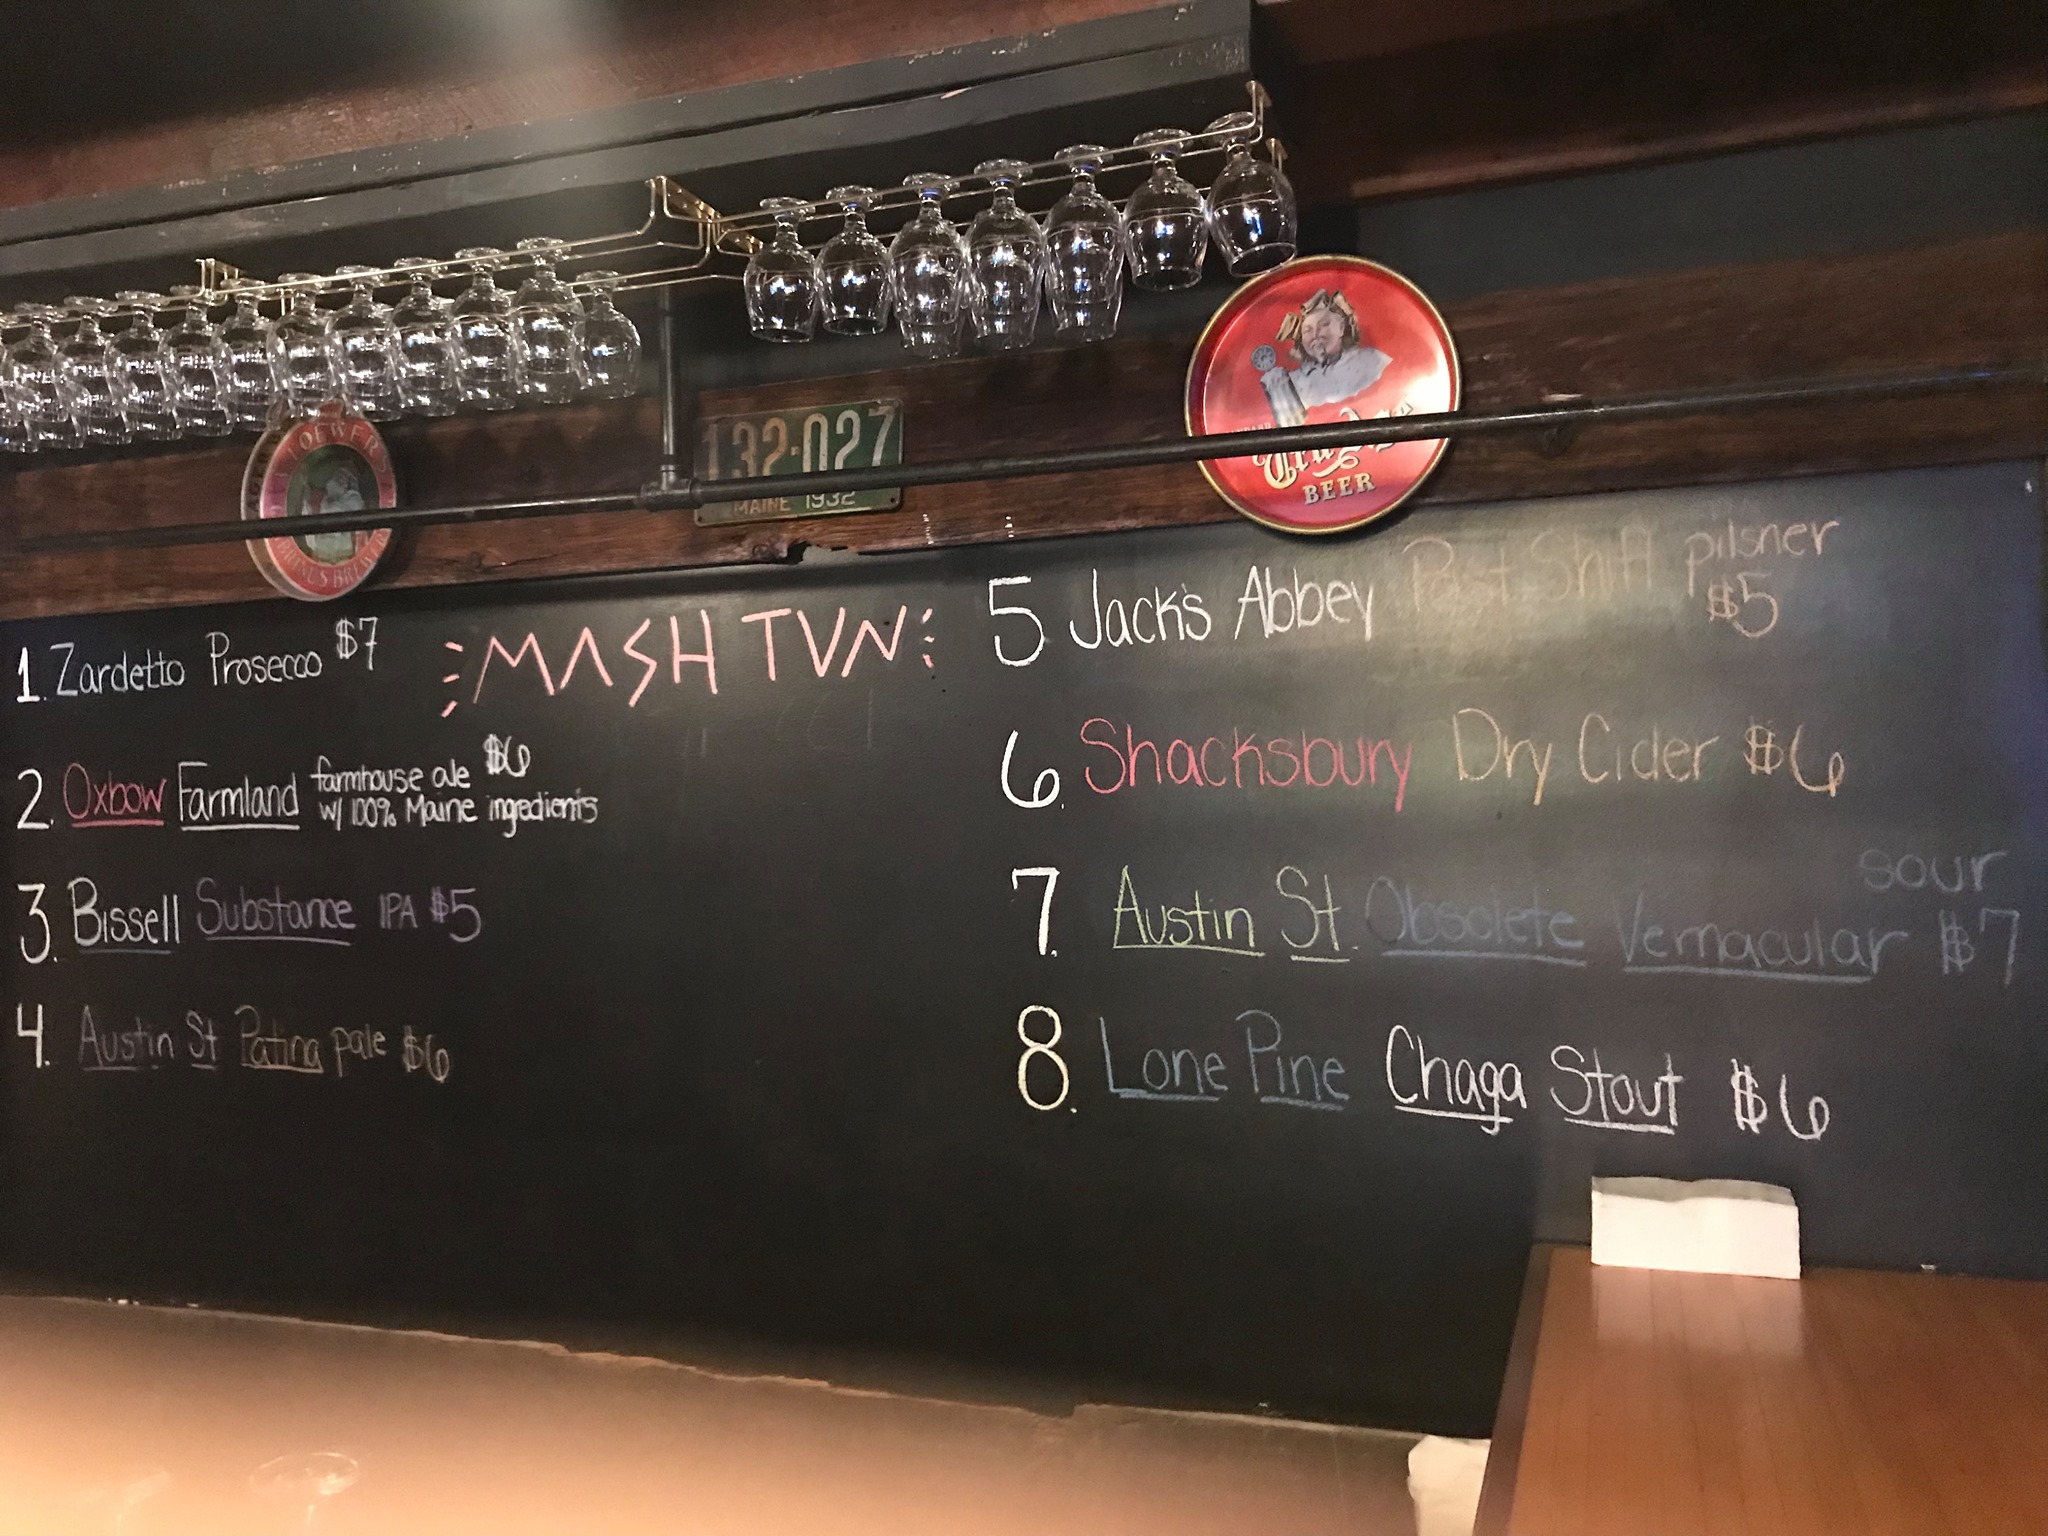 132·027
MAINE 1932
BEER
MASH TVN
1. Zardetto Prosecco $7
2. Oxbow Farmland farmhouse ale $6
w/ 100% Maine ingredients
3. Bissell Substance IPA $5
4. Austin St Patina pale $6
5 Jack's Abbey Post Shift pilsner
$5
6. Shacksbury Dry Cider $6
7. Austin St. Obsolete Vernacular sour
$7
8. Lone Pine Chaga Stout $6